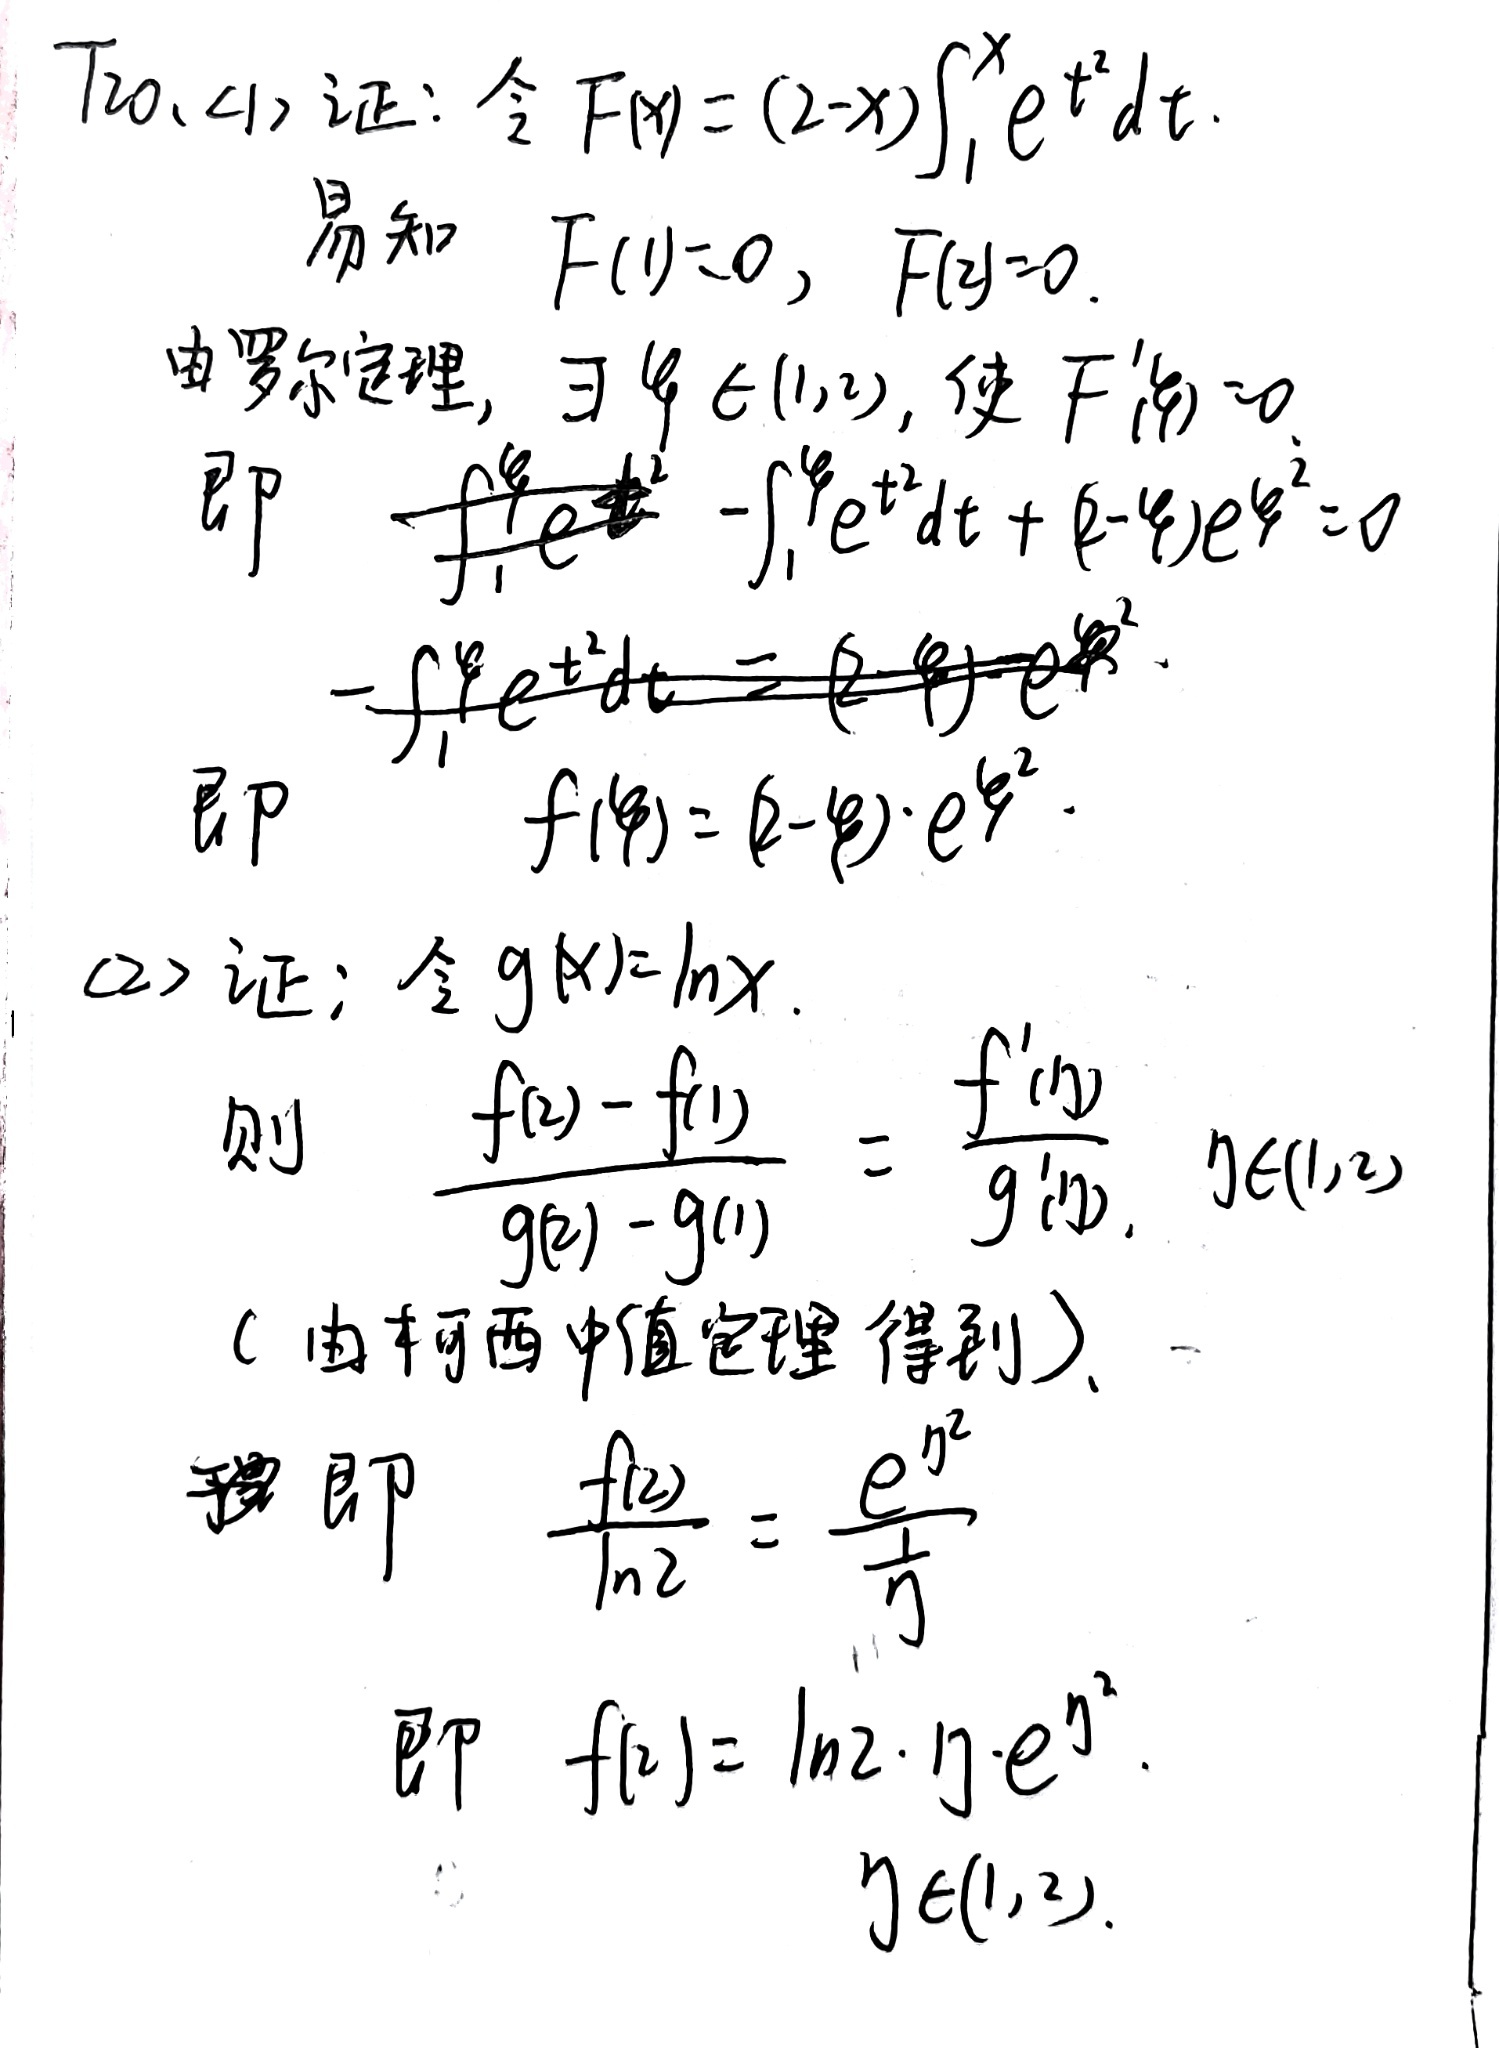 T20、<1> 证: 令 F(x) = (2-x)∫₁ˣ e^{t²}dt.
易知 F(1)=0, F(2)=0.
由罗尔定理, ∃ φ ∈(1,2), 使 F'(φ)=0.
即 -∫₁^φ e^{t²}dt + (2-φ)e^{φ²}=0
-∫₁^φ e^{t²}dt = (2-φ) e^{φ²}.
即 f(φ) = (2-φ)·e^{φ²}.
<2> 证: 令 g(x)=lnx.
则 \frac{f(2)-f(1)}{g(2)-g(1)} = \frac{f'(η)}{g'(η)}. η∈(1,2)
(由柯西中值定理得到).
即 \frac{f(2)}{ln2} = \frac{e^{η²}}{\frac{1}{η}}
即 f(2) = ln2·η·e^{η²}.
η∈(1,2).